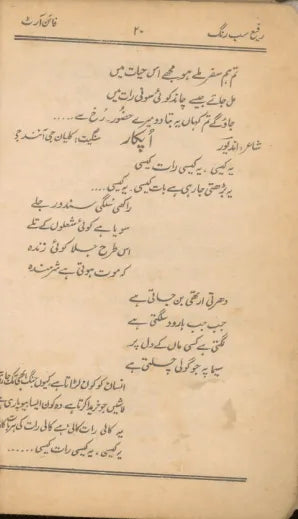 رفیع سب رنگ ۲۰ فائن آرٹ
تم ہم سفر ملے ہو مجھے اس حیات میں
مل جائے جیسے چاند کوئی سونی رات میں
جاؤ گے تم کہاں یہ بتا دو میرے حضور۔ رُخ سے ....
شاعر: اندیور اُپکار سنگیت: کلیان جی آنند جی
یہ کیسی، یہ کیسی رات کیسی
یہ بڑھتی جا رہی ہے بات کیسی۔ یہ کیسی....
راکھی سُلگی سندور جلے
سویا ہے کوئی شعلوں کے تلے
اس طرح جلا کوئی زندہ
کہ موت ہوتی ہے شرمندہ
دھرتی ارتھی بن جاتی ہے
جب جب بارود سلگتی ہے
لگتی ہے کسی ماں کے دل پر
سیما پہ جو گولی چلتی ہے
انسان کو کون لڑاتا ہے کیوں
لاشیں جو خریدا کرتا ہے وہ کون ایسا بیوپاری ہے
یہ کالی رات کالی ہے کالی رات کی
یہ کیسی، یہ کیسی رات کیسی......